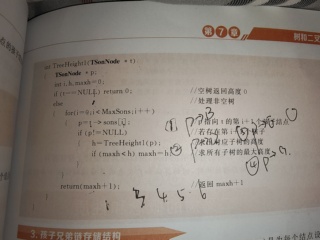 第7章
树和二
int TreeHeight1(TSonNode *t)
TSonNode *p;
int i,h,maxh=0;
if (t==NULL) return 0; //空树返回高度0
else //处理非空树
for(i=0;i<MaxSons;i++)
p=t->sons[i]; //p指向t的第i+1个孩子结点
if (p!=NULL) //若存在第i+1个孩子
h=TreeHeight1(p); //求出对应子树的高度
if (maxh<h) maxh=h; //求所有子树的最大高度
return(maxh+1); //返回 maxh+1
3 4 5 6
3. 孩子兄弟链存储结构